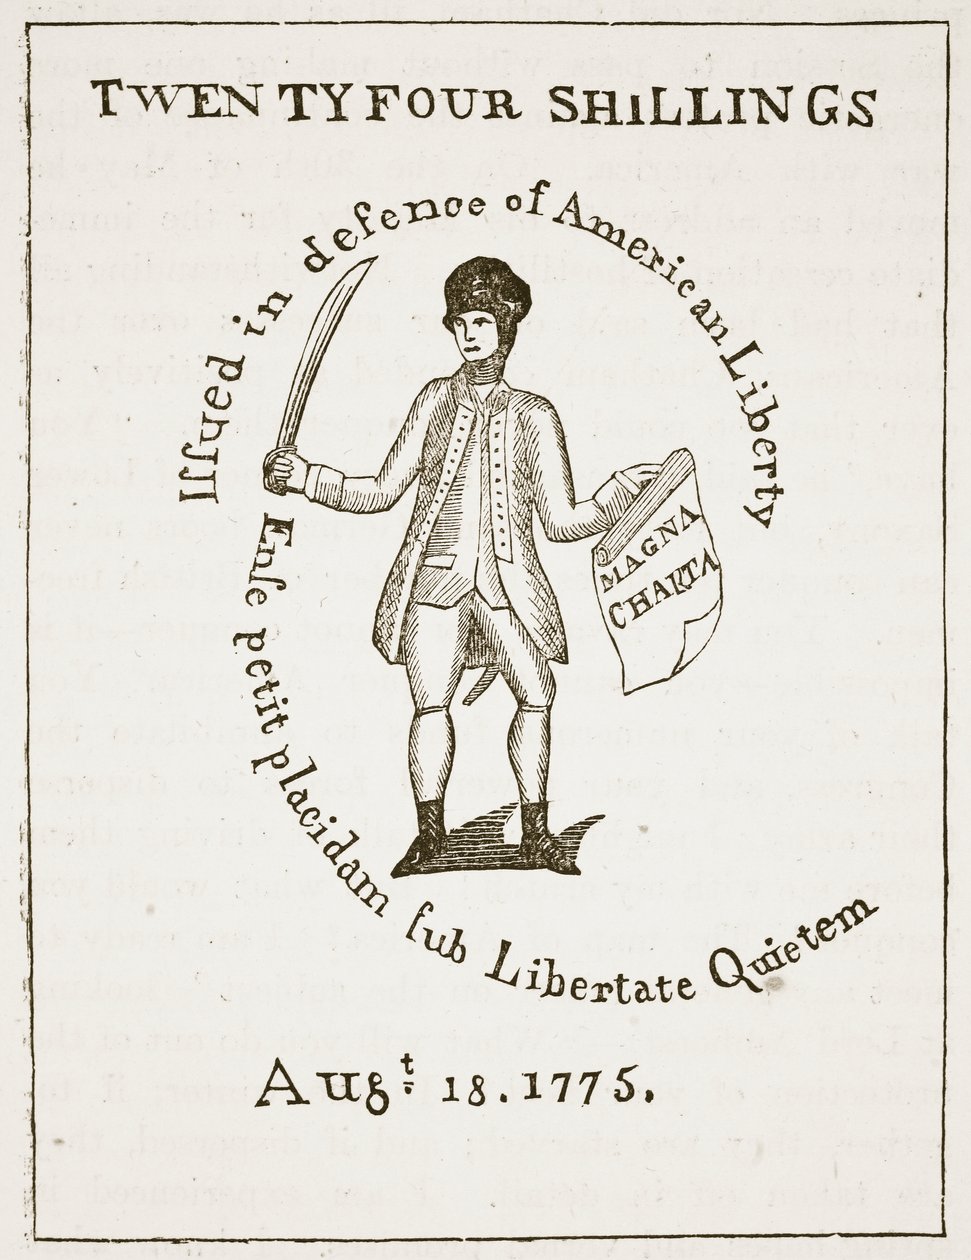 TWENTY FOUR SHiLLINGS
Iſſued in defence of American Liberty
MAGNA
CHARTA
Enſe petit placidam ſub Libertate Quietem
Augt. 18. 1775.